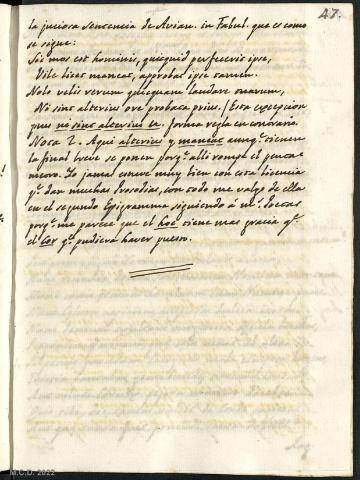 47.
la juiciosa sentencia de Avian. in Fabul. que es como
se sigue:
Sic mos est hominis, quicquid perfecerit ipse,
Vile licet maneat, approbat ipse tamen.
Nolo velis rerum quicquam laudare tuarum,
Ni sint alterius ore probata prius. (Esta excepcion
pues no sint alterius ore forma regla en contrario.
Nota 2. Aqui alterius y maneat aunq.e tienen
la final breve se ponen porq.e alli rompe el penta-
metro. Yo jamas estuve muy bien con esta licencia
q.e dan muchas Prosodias, con todo me valgo de ella
en el segundo Epigramma siguiendo á m.s Poetas
porq.e me parece que el hoc tiene mas gracia q.e
el cor q.e pudiera haver puesto.
M.C.D. 2022